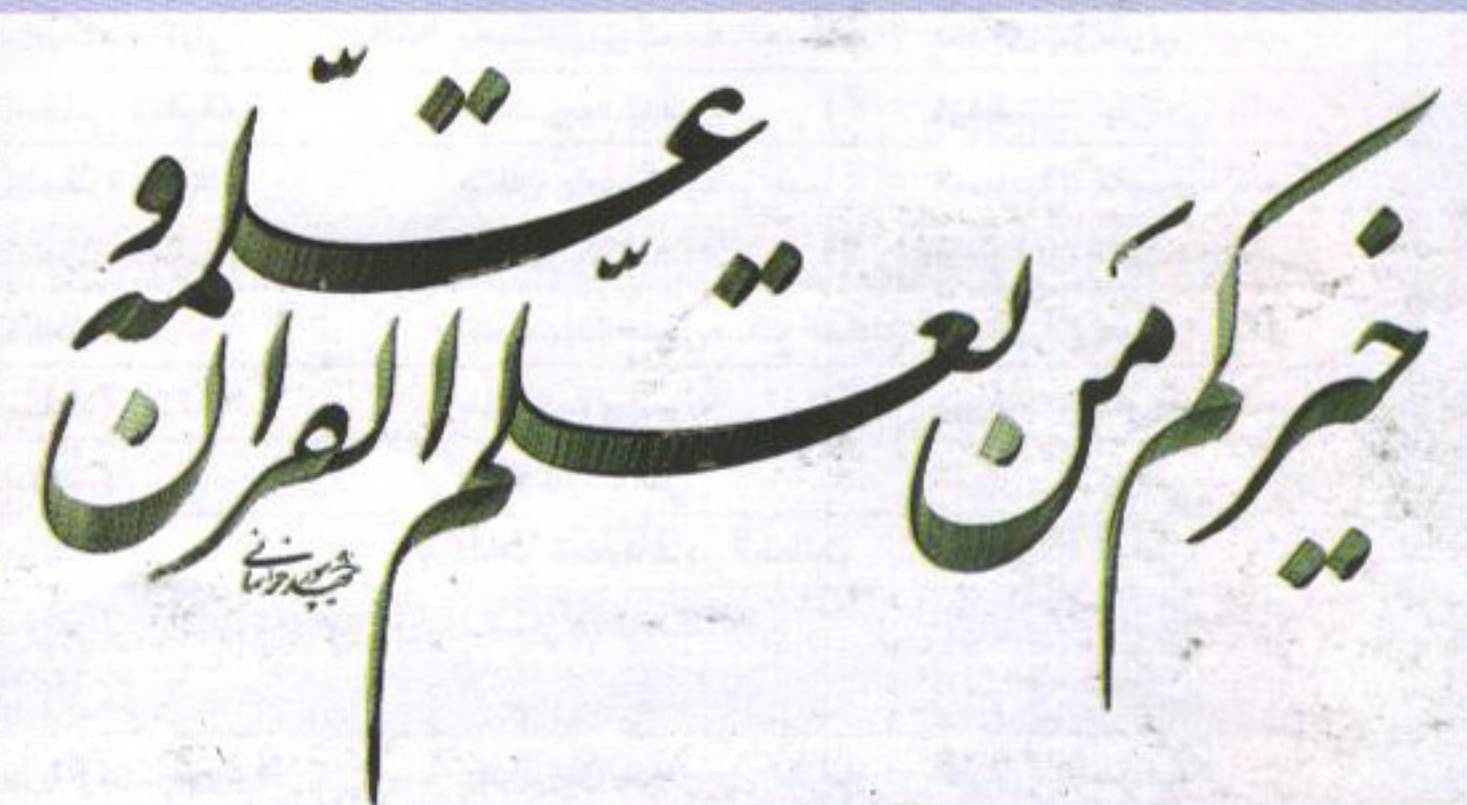 خیرکم مَن تعلّم القران و علّمه